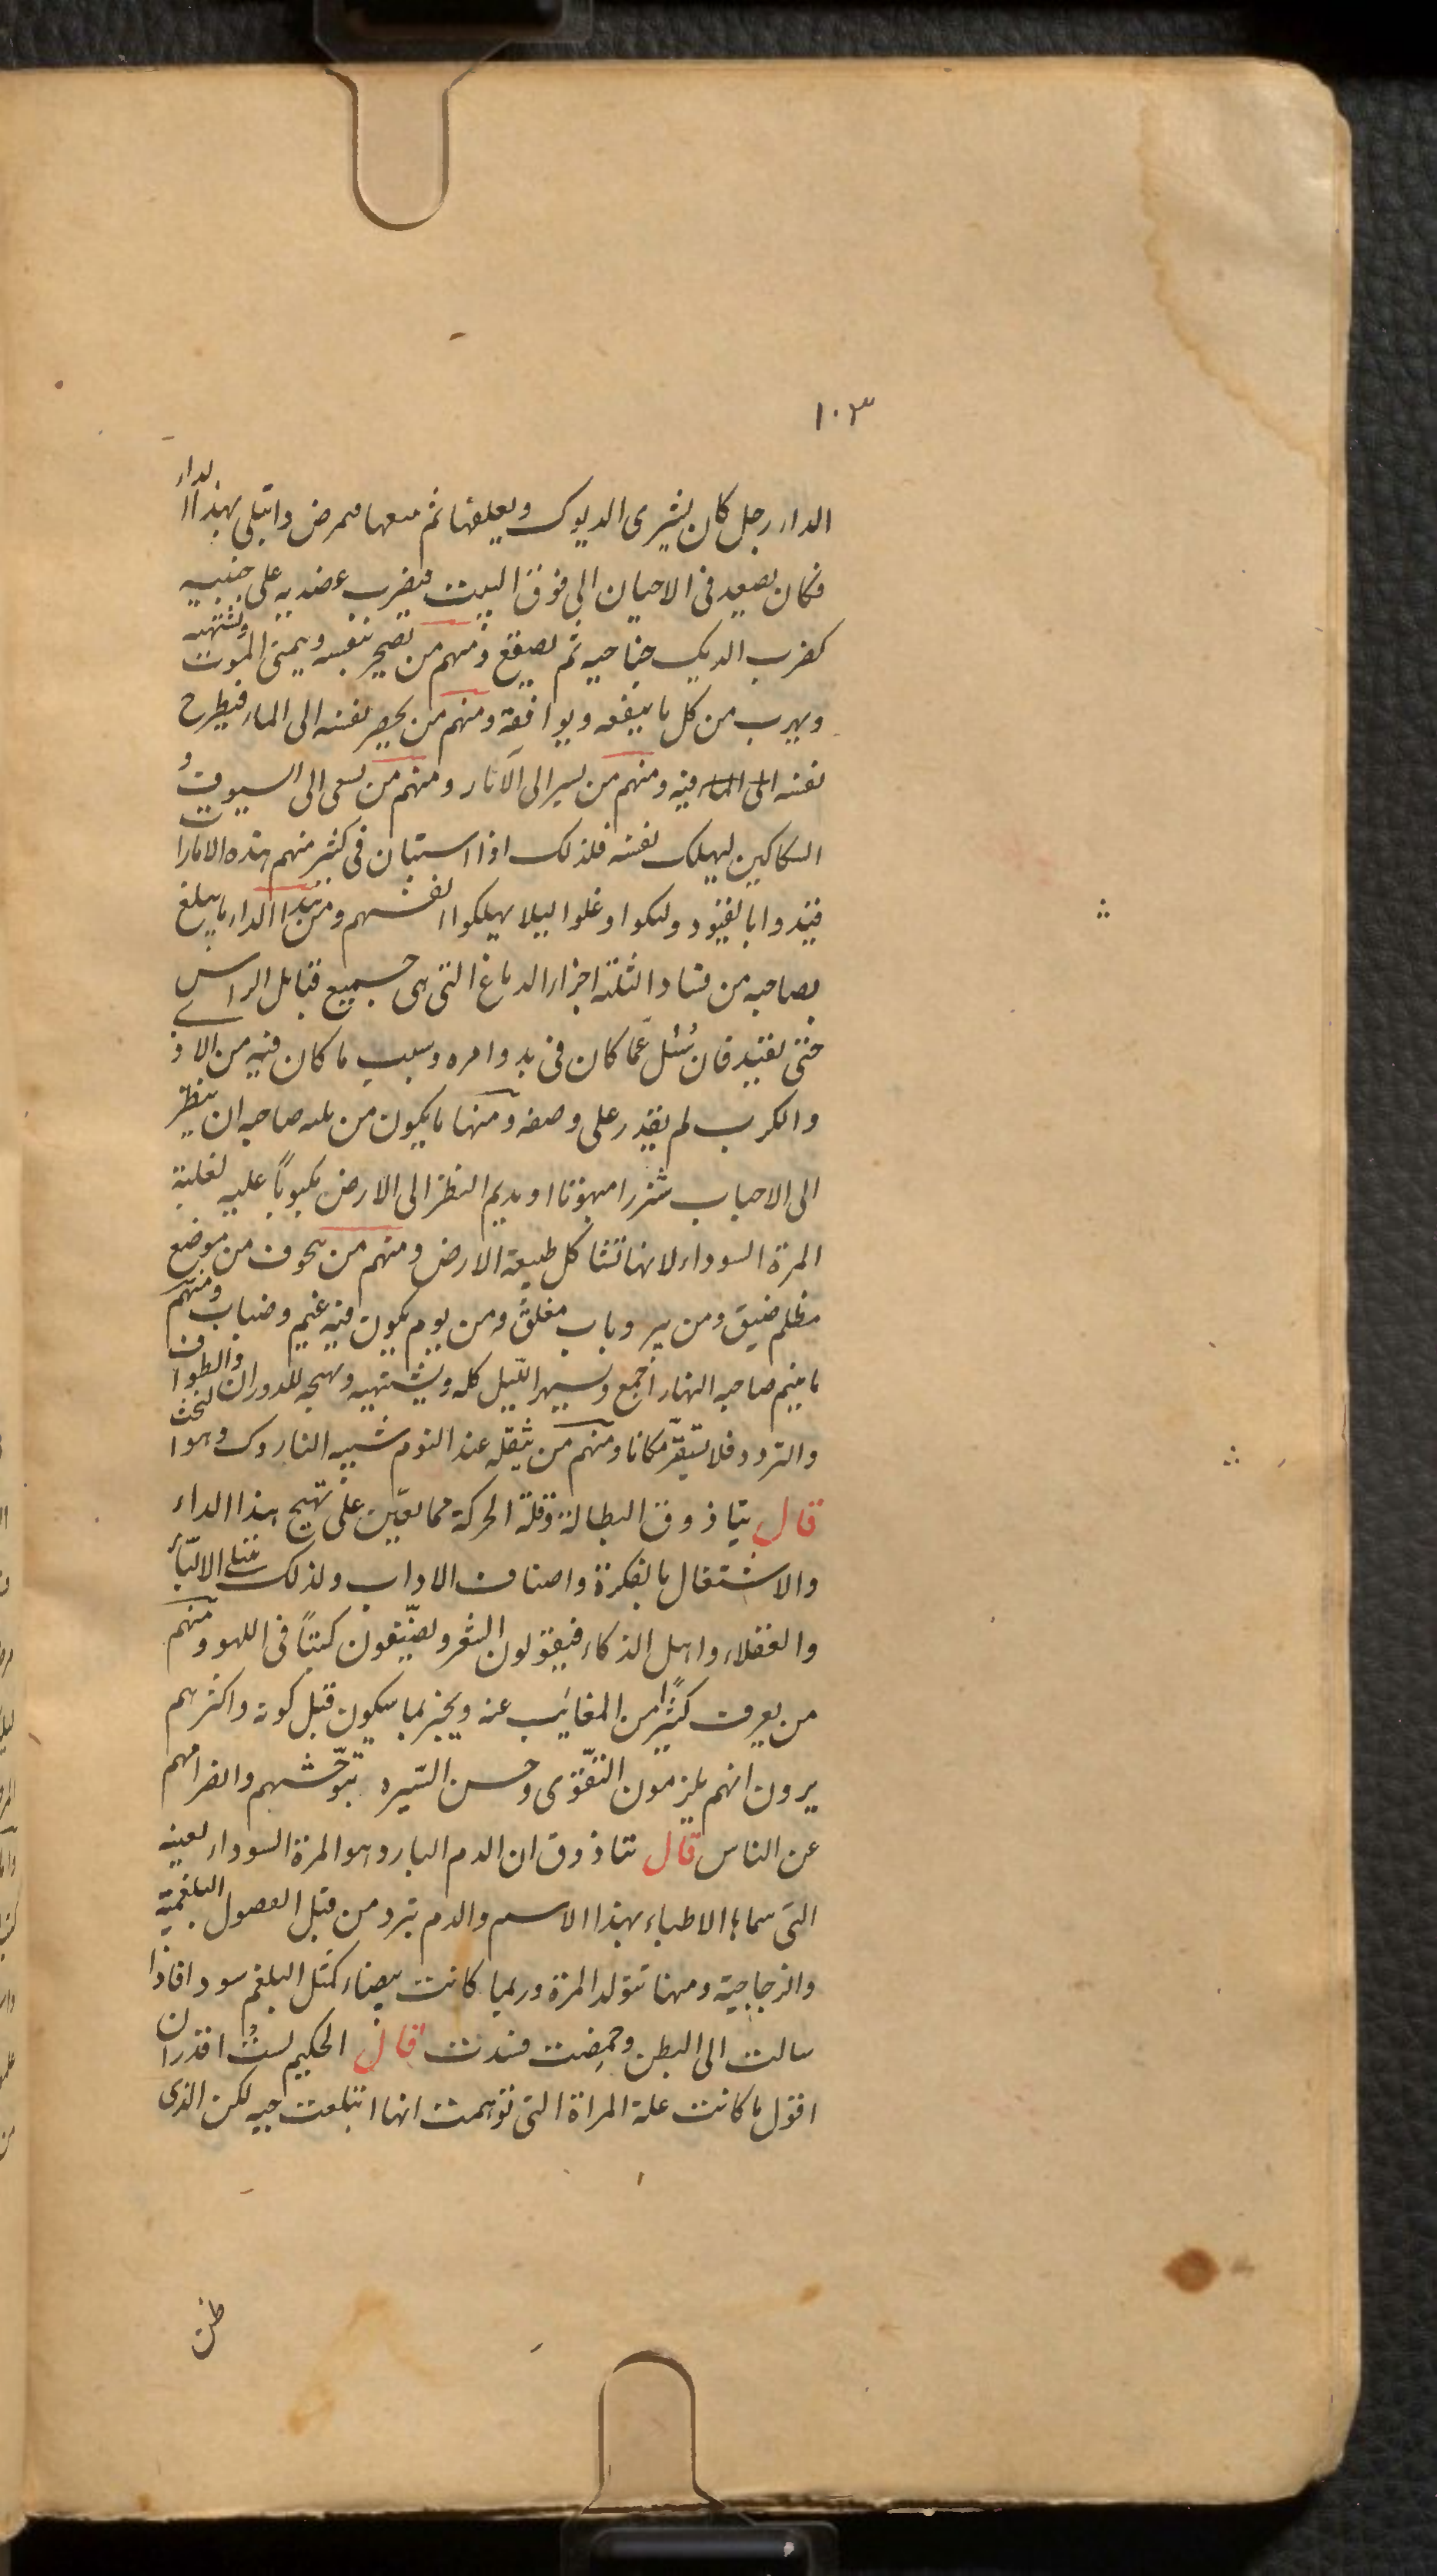 ١٠٣
الداء رجل كان يشترى الديوك ويعلفها ثم يبيعها فمرض وابتلى بهذا الداء
فكان يصعد فى الاحيان الى فوق البيت فيضرب عضديه على جنبيه
كضرب الديك جناحيه ثم يصقع ومنهم من تضجر نفسه ويتمنى الموت ويشتهيه
ويهرب من كل ما ينفعه ويوافقه ومنهم من يحضر نفسه الى الماء فيطرح
نفسه فيه ومنهم من يسير الى الآبار ومنهم من يسعى الى السيوف و
السكاكين ليهلك نفسه فلذلك اذا استبان فى كثير منهم هذه الامارات
قيدوا بالقيود وغلوا ليلا يهلكوا انفسهم ومن هذا الداء ما يبلغ
بصاحبه من فساد الثلثة اجزاء الدماغ التى هى جميع قبائل الراس
حتى فان سُئل عمّا كان فى بدو امره وسبب ما كان فيه من الاذى
والكرب لم يقدر على وصفه ومنها ما يكون من صاحبه ان ينظر
الى الاحباب شزرا مبهوتا او يديم النظر الى الارض مكبوبًا عليه لغلبة
المرة السوداء لانها تشاكل طبيعة الارض ومنهم من يخوف من موضع
مظلم ضيق ومن بير وباب مغلق ومن يوم يكون فيه غيم وضباب ومنهم
ما ينيم صاحبه النهار اجمع ويسهر الليل كله ويشتهيه ويهيجه للدوران والطواف
والتردد فلا يستقرّ مكانا ومنهم من يثقله عند النوم شبيه الناروك وهو الخث
قال بياذوق البطالة وقلة الحركة مما يعين على تهيج هذا الداء
والاشتغال بالفكرة واصناف الاداب ولذلك الالبّاء
والعقلاء واهل الذكاء فيقولون الشعر ويصنّفون كتبًا فى اللهو ومنهم
من يعرف كثيرًا من المغائب عنه ويخبر بما سيكون قبل كونه واكثرهم
يرون انهم يلزمون التقوّى وحسن السّيره بتوحّشهم وانصرامهم
عن الناس قال تياذوق ان الدم البارد هو المرة السوداء بعينه
التى سماها الاطباء بهذا الاسم والدم يبرد من قبل الفصول البلغمية
والزجاجية ومنها تتولد المرة وربما كانت بيضاء كمثل البلغم سودا فاذا
سالت الى البطن وحمضت فسدت قال الحكيم لستُ اقدر ان
اقول ما كانت علة المراة التى توهمت انها ابتلعت حيه لكن الذى
ظن